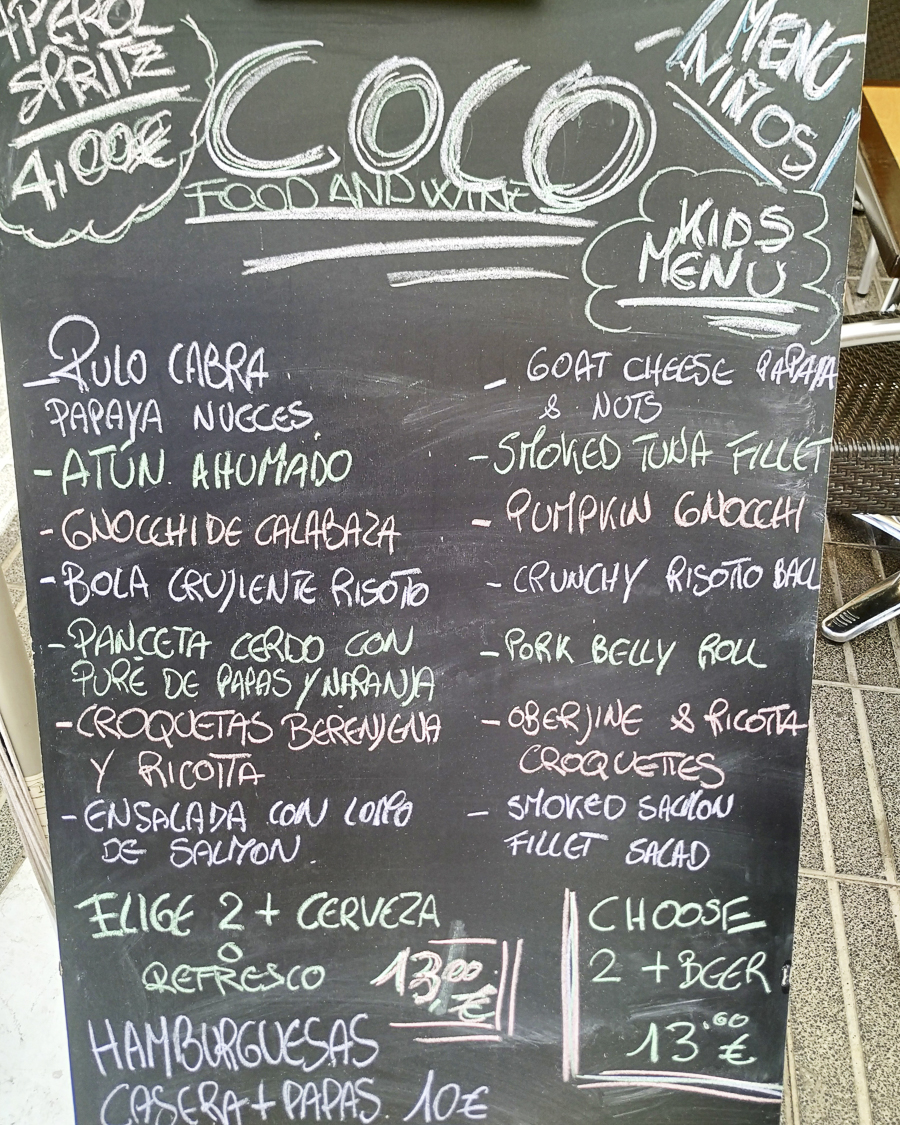 APEROL
SPRITZ
4,00€
COCO
FOOD AND WINES
MENÚ
NIÑOS
KIDS
MENU
- RULO CABRA
PAPAYA NUECES
- ATÚN AHUMADO
- GNOCCHI DE CALABAZA
- BOLA CRUJIENTE RISOTTO
- PANCETA CERDO CON
PURÉ DE PAPAS Y NARANJA
- CROQUETAS BERENJENA
Y RICOTTA
- ENSALADA CON LOMO
DE SALMON
- GOAT CHEESE PAPAYA
& NUTS
- SMOKED TUNA FILLET
- PUMPKIN GNOCCHI
- CRUNCHY RISOTTO BALL
- PORK BELLY ROLL
- OBERJINE & RICOTTA
CROQUETTES
- SMOKED SALMON
FILLET SALAD
ELIGE 2 + CERVEZA
O
REFRESCO 13,00 €
CHOOSE
2 + BEER
13.00 €
HAMBURGUESAS
CASERA + PAPAS. 10€